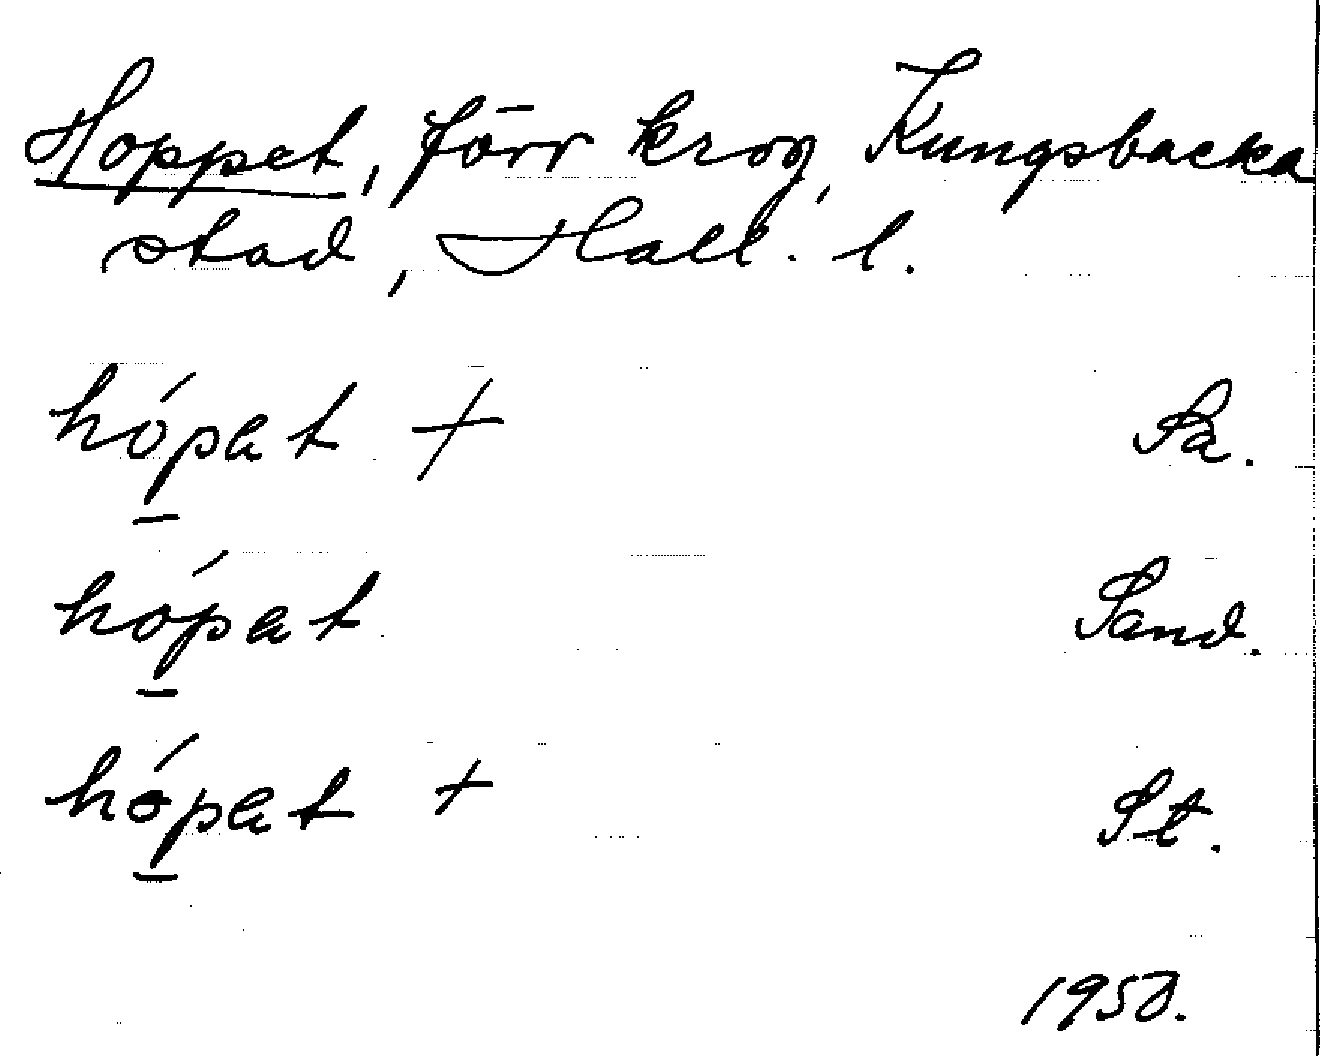 Hoppet, förr krog, Kungsbacka
stad, Hall. l.
hópat + Sä.
hópat Sand.
hópat + St.
1950.